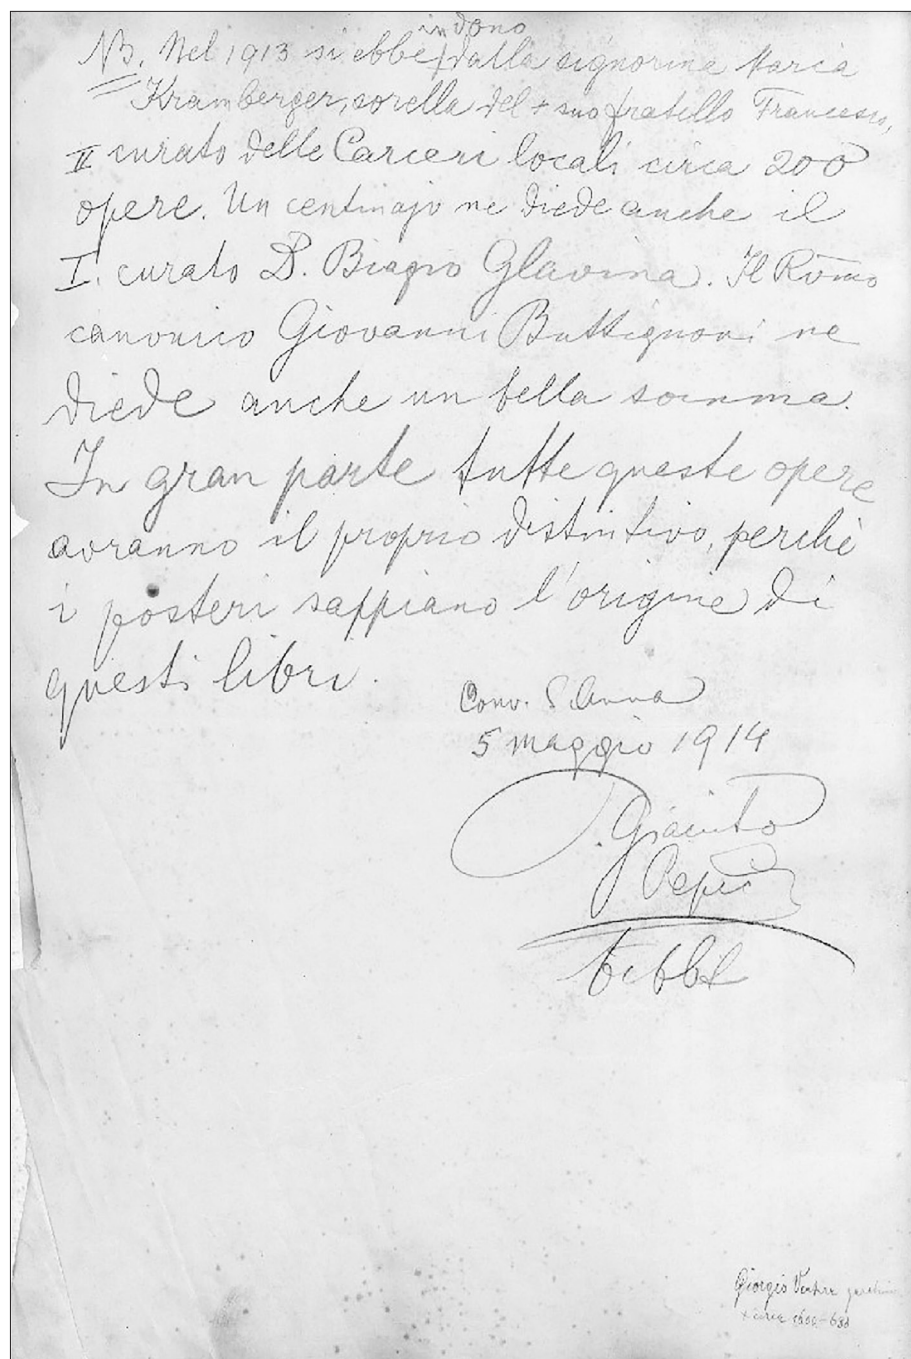 in dono
NB. Nel 1913 si ebbe dalla signorina Maria
Kramberger, sorella del + suo fratello Francesco,
II curato delle Carceri locali circa 200
opere. Un centinajo ne diede anche il
I. curato D. Biagio Glavina. Il Rvmo
canonico Giovanni Buttignoni ne
diede anche un bella somma.
In gran parte tutte queste opere
avranno il proprio distintivo, perchè
i posteri sappiano l'origine di
questi libri.
Conv. S. Anna
5 maggio 1914
P. Giacinto
Repič
bibbl
Giorgio
+ circa